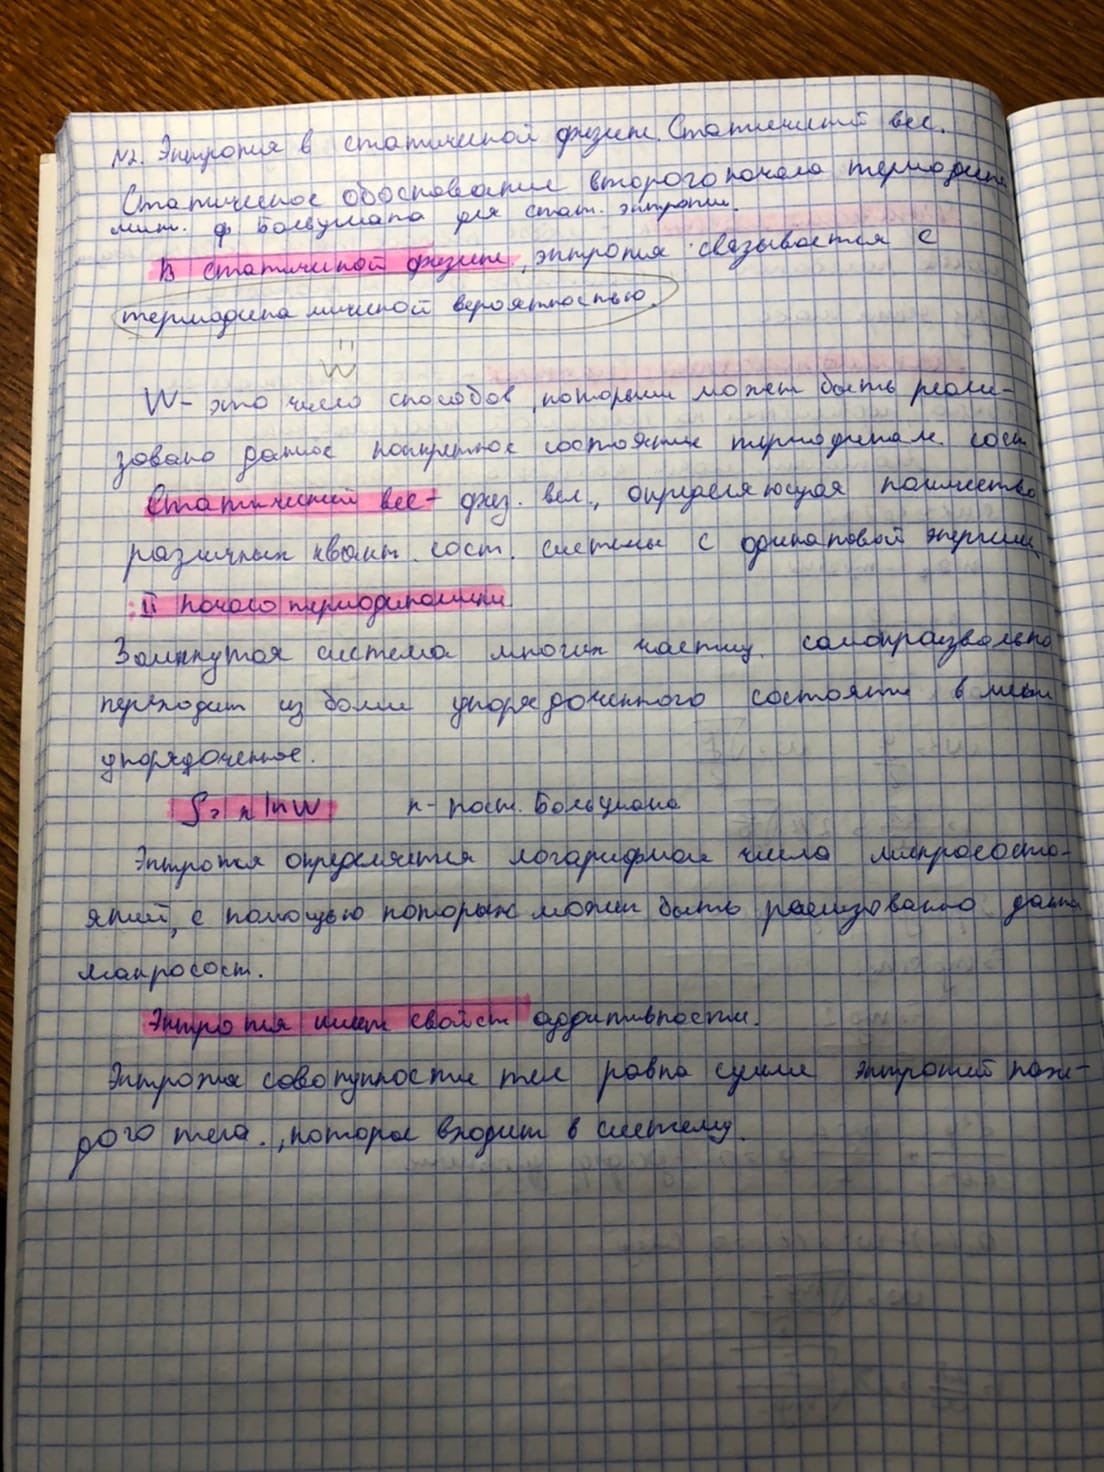 N2. Энтропия в статичиской физике. Статический вес.
Статическое обоснование второго начала термодина
мик. ф Больцмана для стат. энтропии.
В статичиской физике, энтропия связывается с
термодинамической вероятностью.
W
W - это число способов, которыми может быть реали-
зовано данное конкретное состояние термодинам. сост.
Статический вес - физ. вел., определяющая количество
различных квант. сост. системы с одинаковой энергии.
II начало термодинамики
Замкнутая система многих частиц. самопроизвольно
переходит из более упорядоченного состояние в менее
упорядоченное.
S = k ln W k - пост. Больцмана
Энтропия определяется логарифмом числа микрососто-
яний, с помощью которых может быть реализовано данно
макросост.
Энтропия имеет свойст аддитивности.
Энтропия совокупности тел равна сумме энтропий каж-
дого тела., которое входит в систему.